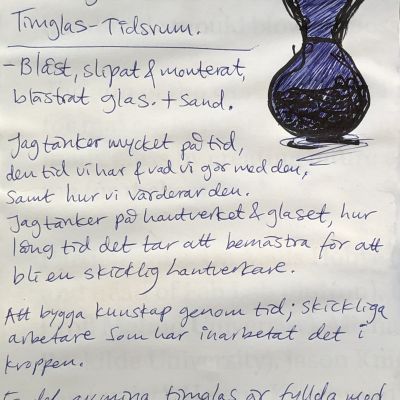 Timglas-Tidsrum.
- Blåst, slipat & monterat,
blästrat glas. + sand.
Jag tänker mycket på tid,
den tid vi har & vad vi gör med den,
samt hur vi värderar den.
Jag tänker på hantverket & glaset, hur
lång tid det tar att bemästra för att
bli en skicklig hantverkare.
Att bygga kunskap genom tid; skickliga
arbetare som har inarbetat det i
kroppen.
En del av mina timglas är fyllda med